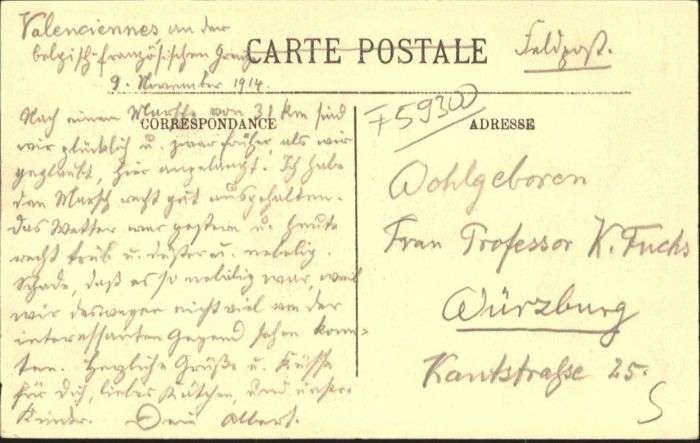 Valenciennes an der
belgisch-französischen Grenze
CARTE POSTALE
Feldpost.
9. November 1914.
Nach einem Marsche von 31 km sind
CORRESPONDANCE
wir glücklich u. zwar früher, als wir
geglaubt, hier angelangt. Ich habe
den Marsch recht gut ausgehalten.
Das Wetter war gestern u. heute
recht trüb u. düster u. nebelig.
Schade, daß es so nebelig war, weil
wir deswegen nicht viel von der
interessanten Gegend sehen konn-
ten. Herzliche Grüße u. Küsse
für Dich, liebes Kätchen, und unsere
Kinder. Dein Albert.
F59300
ADRESSE
Wohlgeboren
Frau Professor K. Fuchs
Würzburg
Kantstraße 25.
5